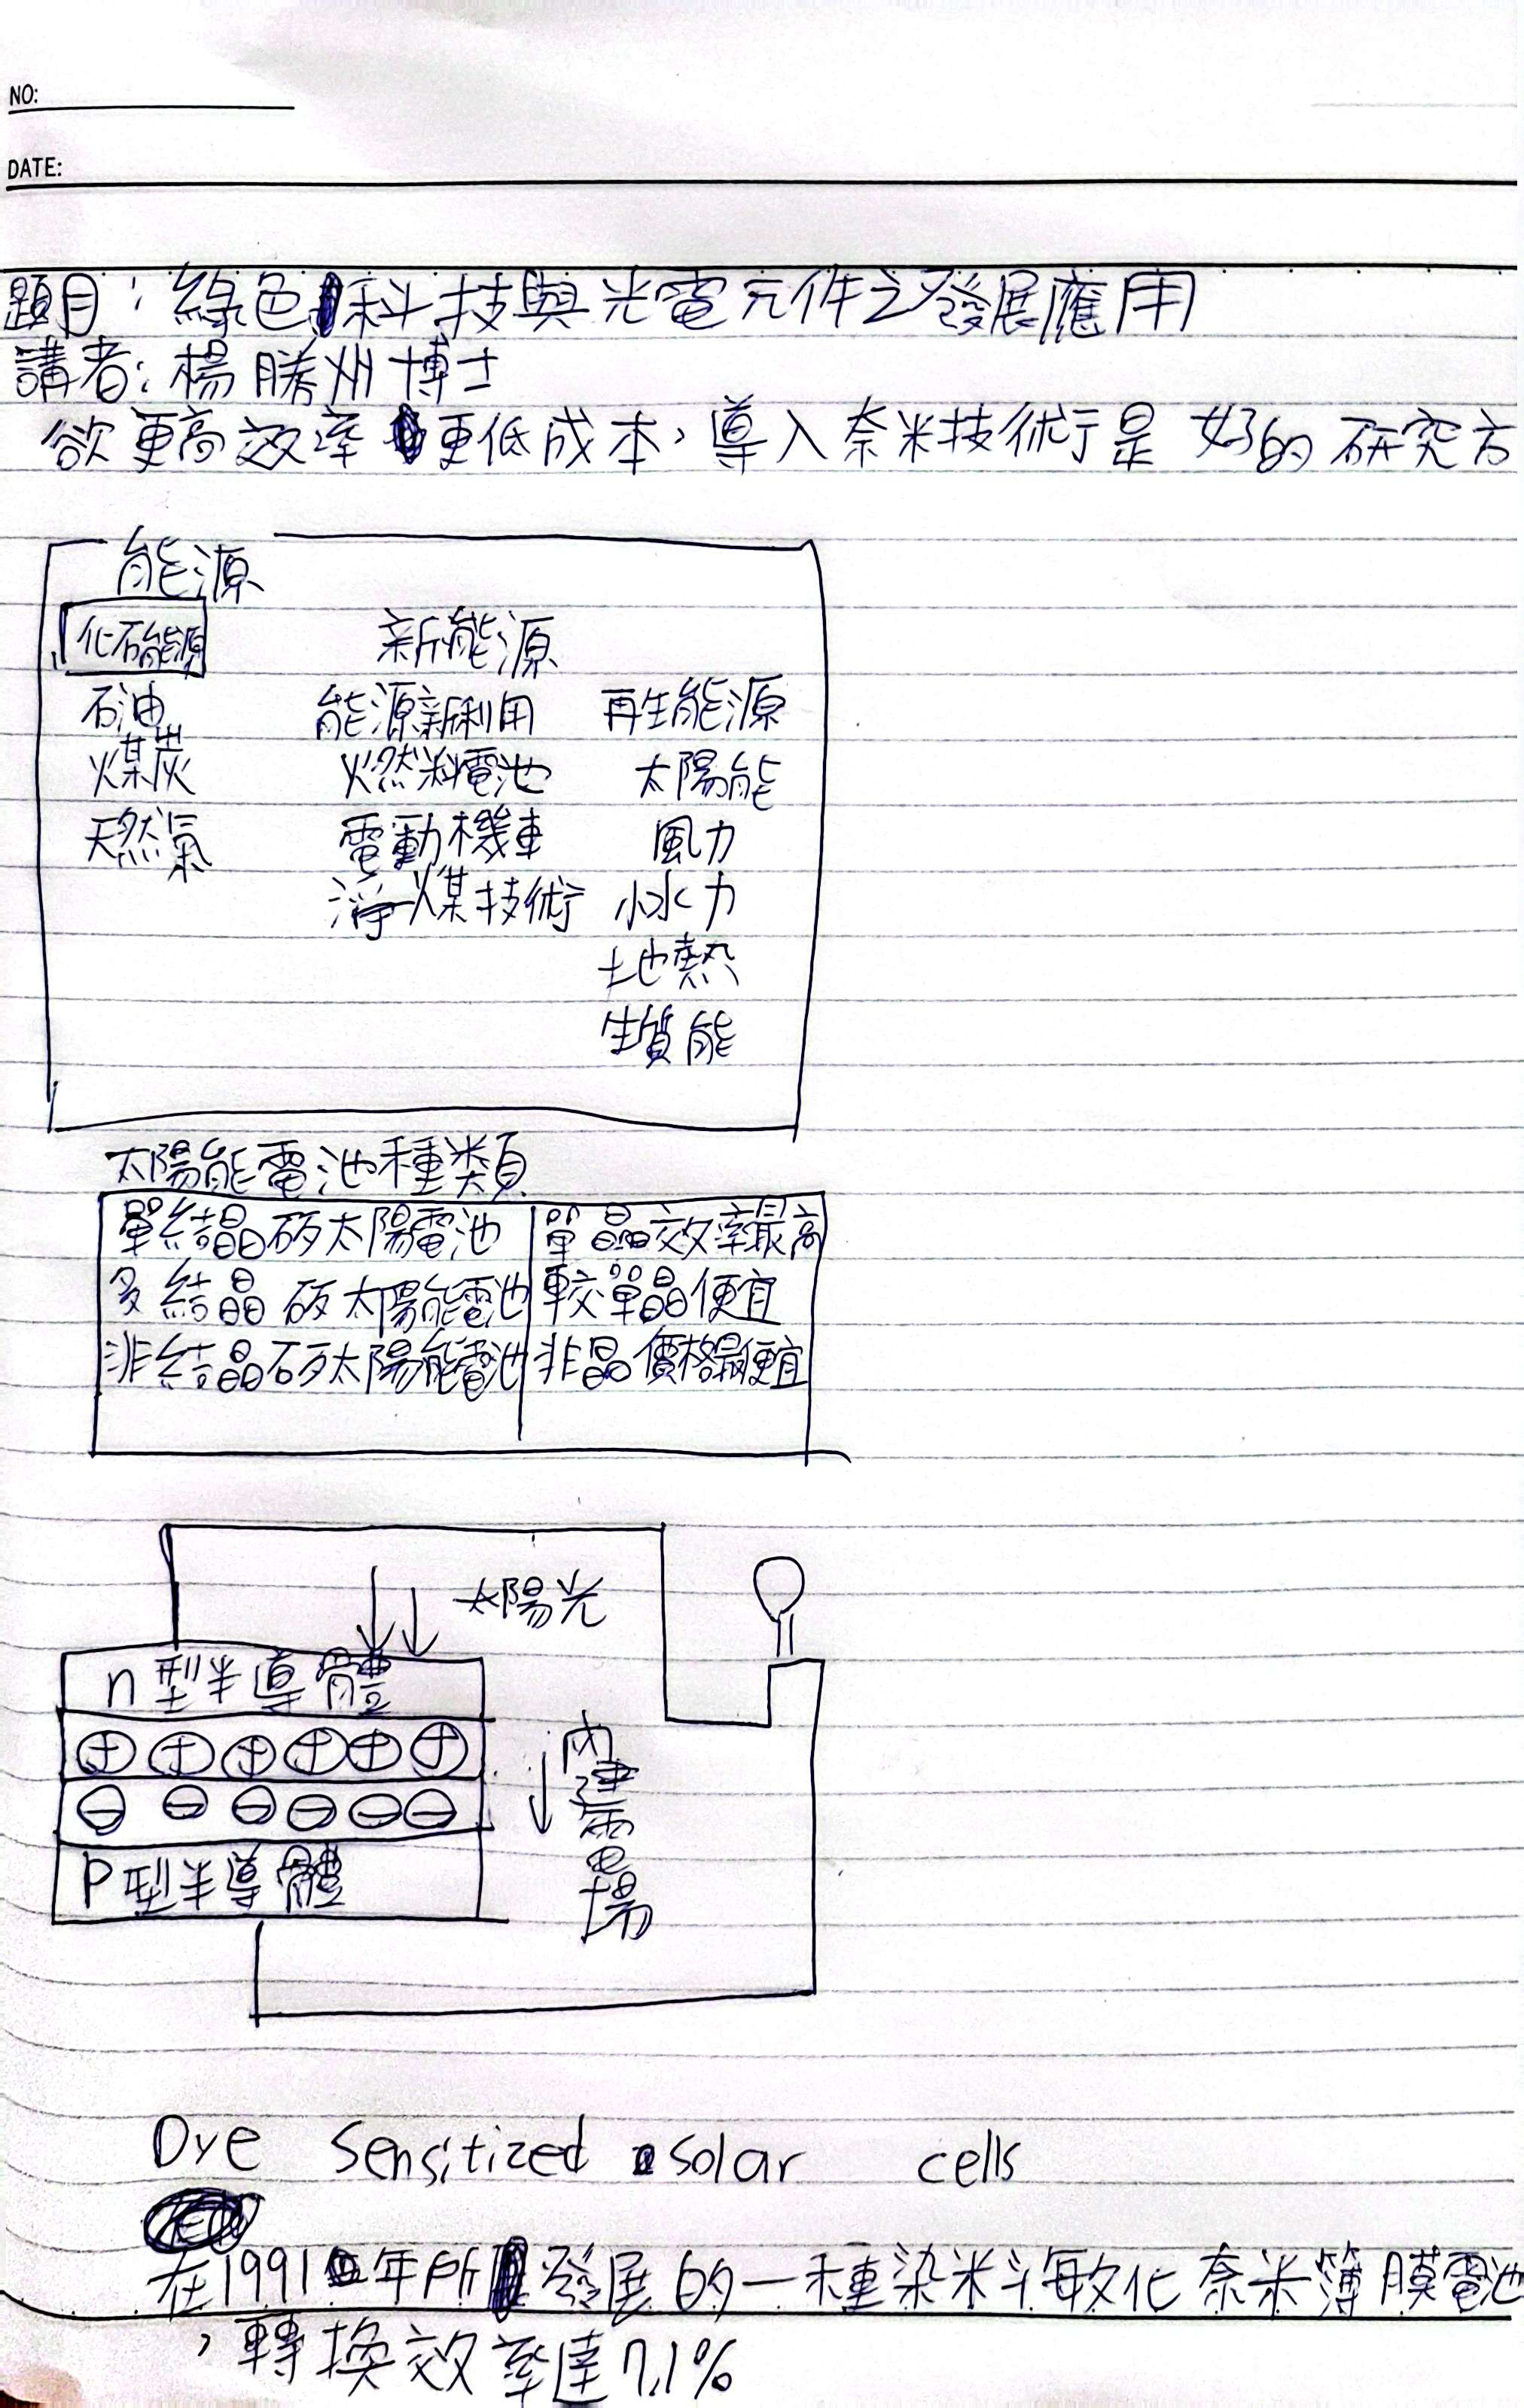 NO:
DATE:
題目：綠色科技與光電元件之發展應用
講者：楊勝州博士
欲更高效率更低成本，導入奈米技術是好的研究方
能源
化石能源 新能源
石油 能源新利用 再生能源
煤炭 燃料電池 太陽能
天然氣 電動機車 風力
淨煤技術 小水力
地熱
生質能
太陽能電池種類
單結晶矽太陽電池 單晶效率最高
多結晶矽太陽能電池 較單晶便宜
非結晶矽太陽能電池 非晶價格最便宜
太陽光
n型半導體
+ + + + + +
− − − − − −
P型半導體
內建電場
Dye Sensitized solar cells
在1991年所發展的一種染料敏化奈米簿膜電池
，轉換效率達7.1%